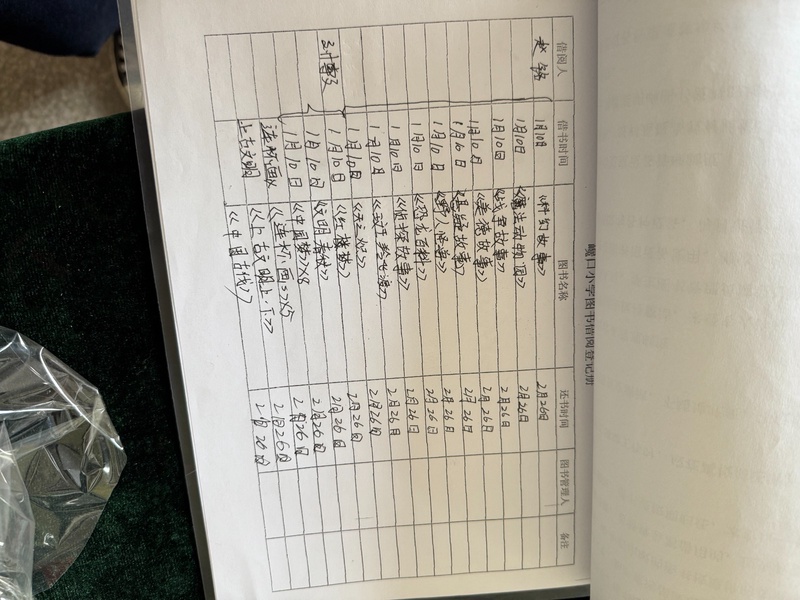 峨口小学图书借阅登记册
借阅人 借书时间 图书名称 还书时间 图书管理人 备注
赵 1月10日 《科幻故事》 2月26日
1月10日 《魔法动物园》 2月26日
1月10日 《战争故事》 2月26日
1月10日 《美德故事》 2月26日
1月10日 故事》 2月26日
1月10日 《野人怪兽》 2月26日
1月10日 《恐龙百科》 2月26日
1月10日 《侦探故事》 2月26日
1月10日 2月26日
1月10日 2月26日
1月10日 《红楼梦》 2月26日
1月10日 《文明 2月26日
1月10日 《中国梦》×8 2月26日
连环画 《连环画》×5 2月26日
上古文明 《上古文明上·下》 2月20日
《中国古代》